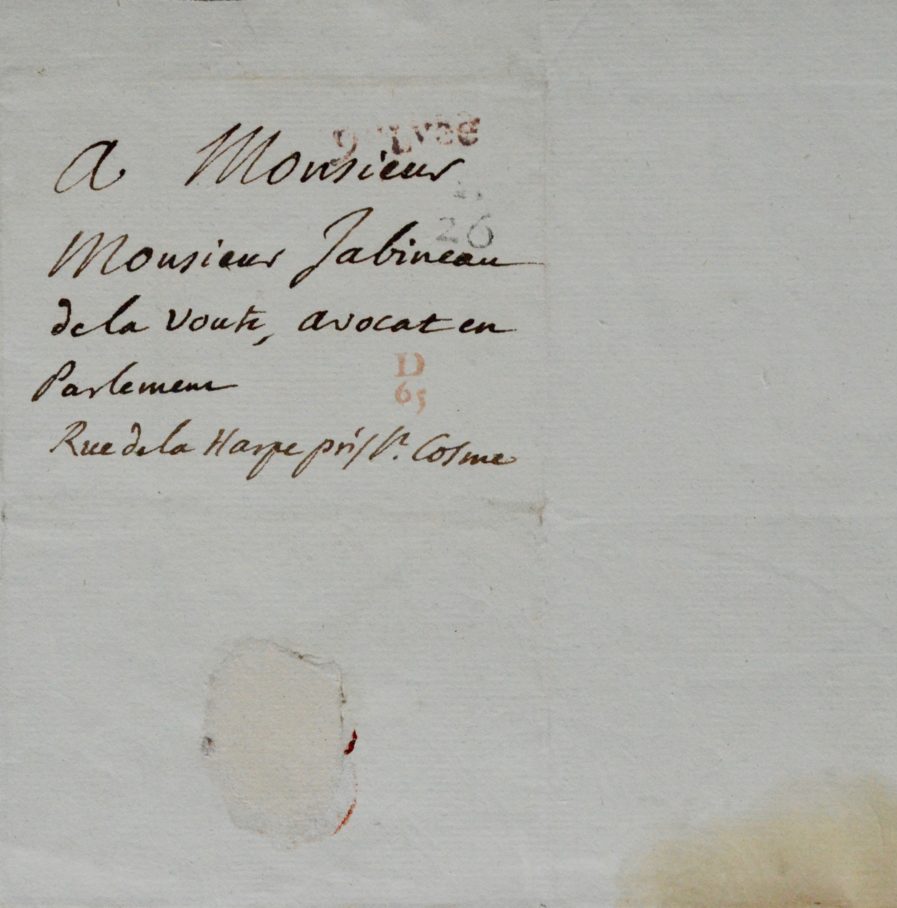 A Monsieur
26
Monsieur Jabineau
de la Voute, avocat en
Parlement
D
65
Rue de la Harpe près St. Cosme